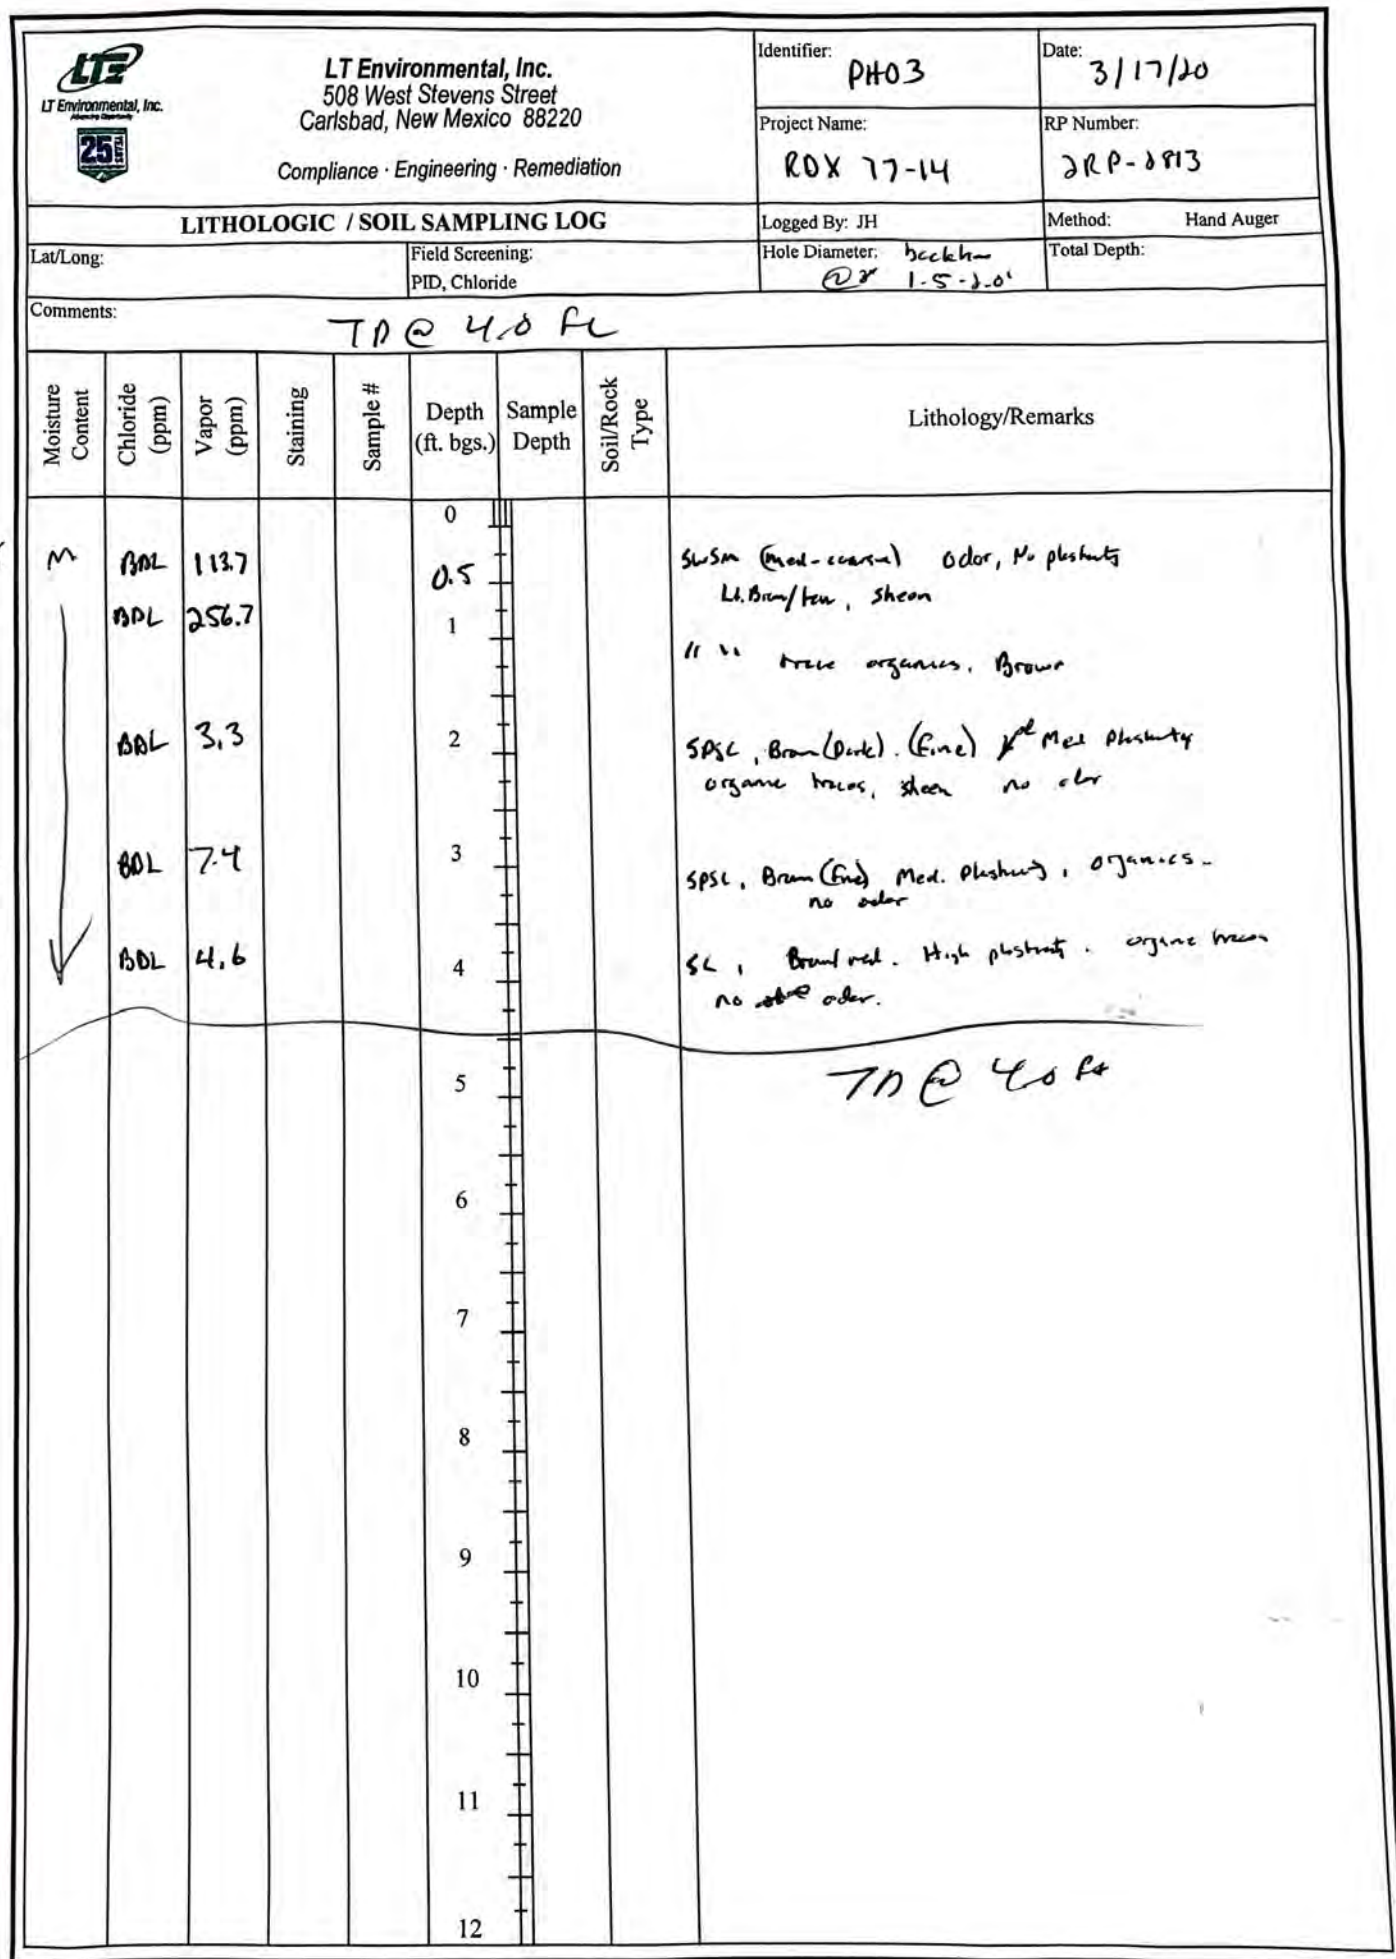 LTE
LT Environmental, Inc.
Advancing Opportunity
25 YEARS
LT Environmental, Inc.
508 West Stevens Street
Carlsbad, New Mexico 88220
Compliance · Engineering · Remediation
Identifier: PH03
Date: 3/17/20
Project Name: RDX 77-14
RP Number: 2RP-2813
LITHOLOGIC / SOIL SAMPLING LOG
Logged By: JH
Method: Hand Auger
Lat/Long:
Field Screening:
PID, Chloride
Hole Diameter:
@ 1.5-2.0'
Total Depth:
Comments: TD @ 4.0 ft
Moisture Content
Chloride (ppm)
Vapor (ppm)
Staining
Sample #
Depth (ft. bgs.)
Sample Depth
Soil/Rock Type
Lithology/Remarks
0
M BDL 113.7 0.5 SWSM (med-coarse) odor, No plasticity
Lt. Brown/tan, sheen
BDL 256.7 1
" " trace organics, Brown
BDL 3.3 2 SPSC, Brown (Dark). (fine) Med Plasticity
organic traces, sheen no odor
BDL 7.4 3 SPSC, Brown (fine) Med. Plasticity, organics-
no odor
BDL 4.6 4 SC, Brown/red. High plasticity. organic traces
no odor.
TD @ 4.0 ft
5
6
7
8
9
10
11
12